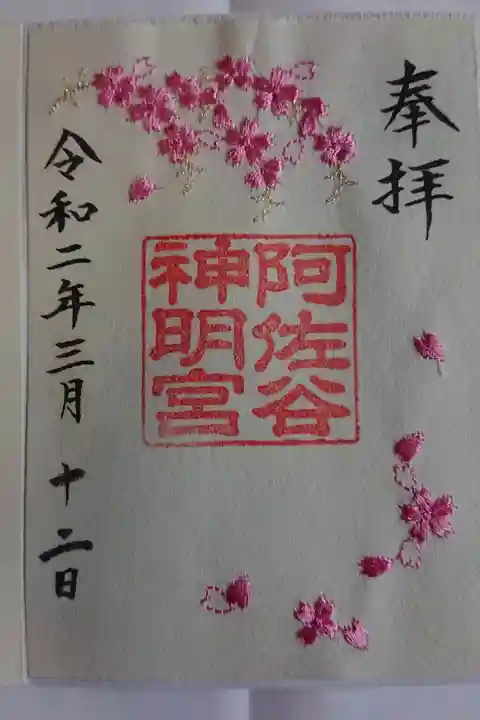 奉拝
阿佐谷
神明宮
令和二年三月十二日